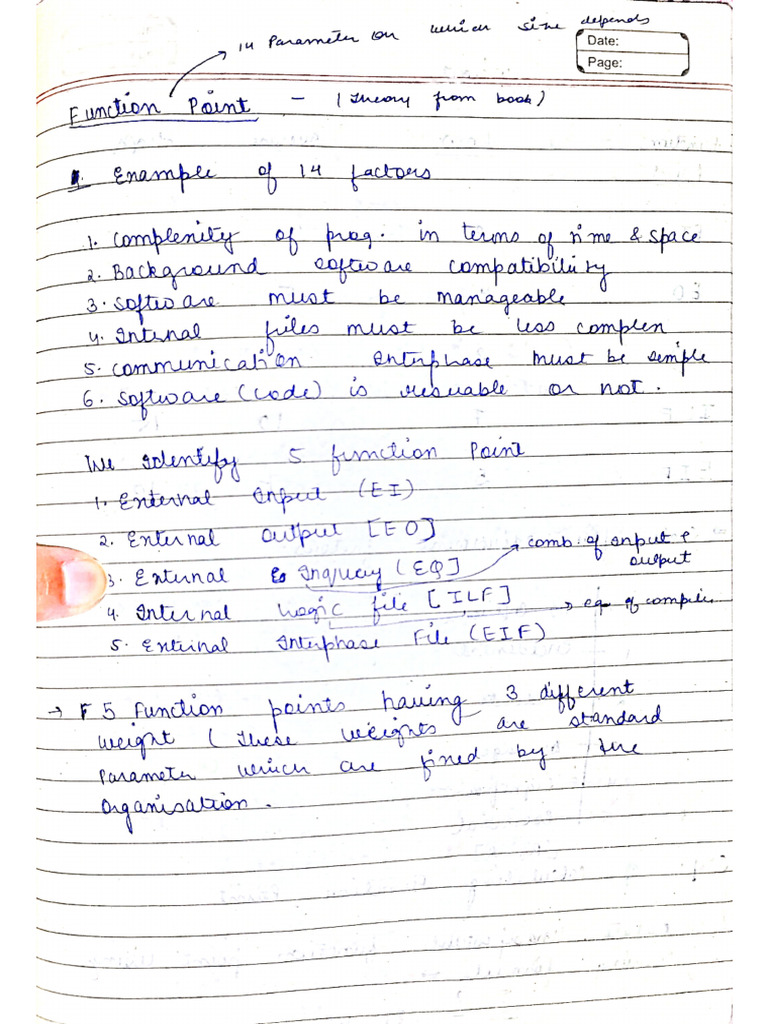 14 Parameter on which size depends
Date:
Page:
Function Point - (Theory from book)
1. Example of 14 factors
1. Complexity of prog. in terms of time & space
2. Background software compatibility
3. Software must be manageable
4. Internal files must be less complex
5. Communication Interphase must be simple
6. Software (code) is resuable or not.
We Identify 5 function Point
1. External Input (EI)
2. External Output [EO]
3. External Inquray (EQ] → comb. of input & output
4. Internal Logic file [ILF] → eg of compiler
5. External Interphase File (EIF)
→ 5 Function points having 3 different
weight (These weights are standard
Parameter which are fixed by the
Organisation.